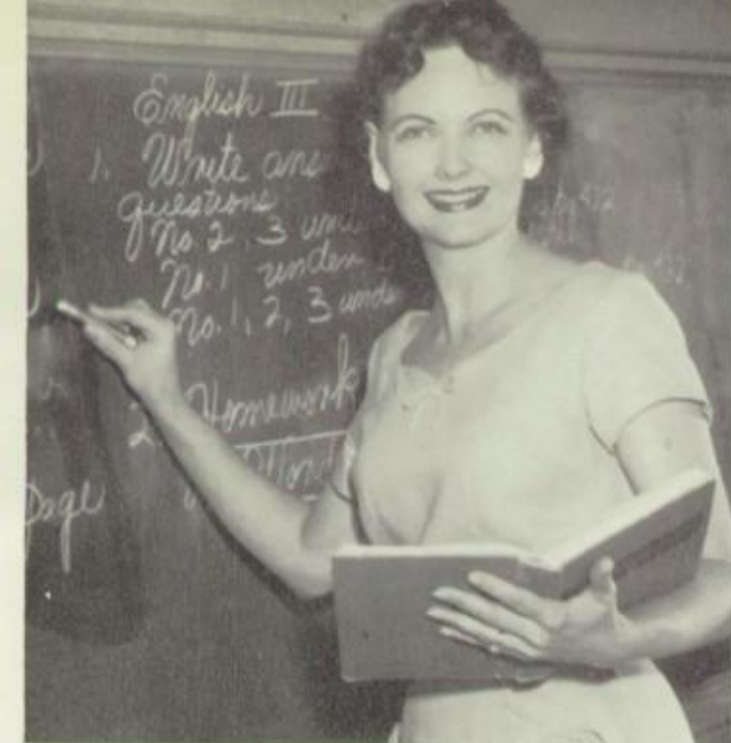 English III
1. Write ans
questions
No. 2, 3 und
No. 1 under
No. 1, 2, 3 unde
2. Homework
Page